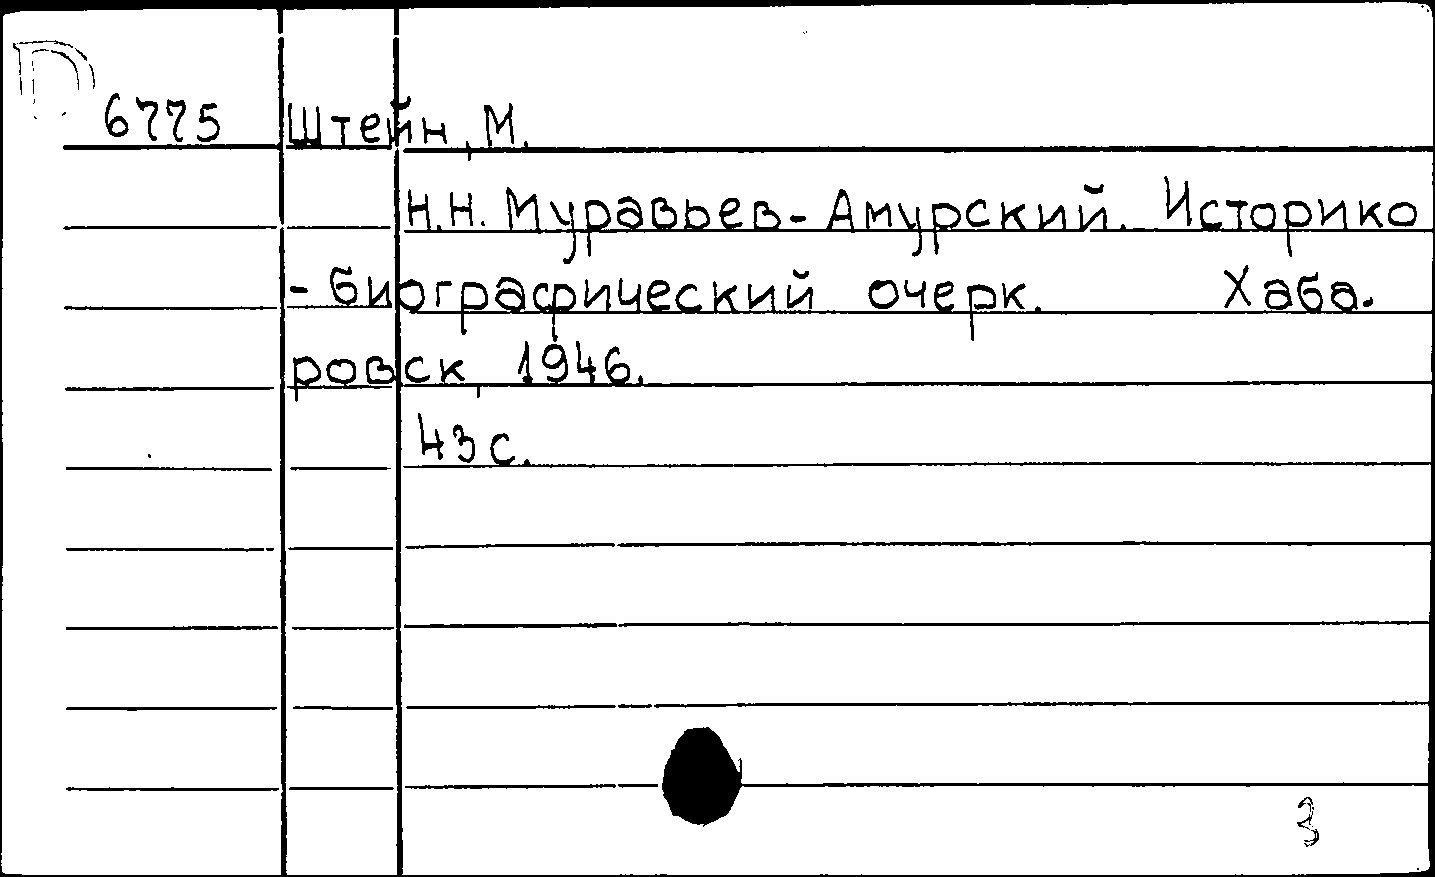 6775 Штейн, М.
Н.Н. Муравьев-Амурский. Историко
-биографический очерк. Хаба-
ровск, 1946.
43 с.
3